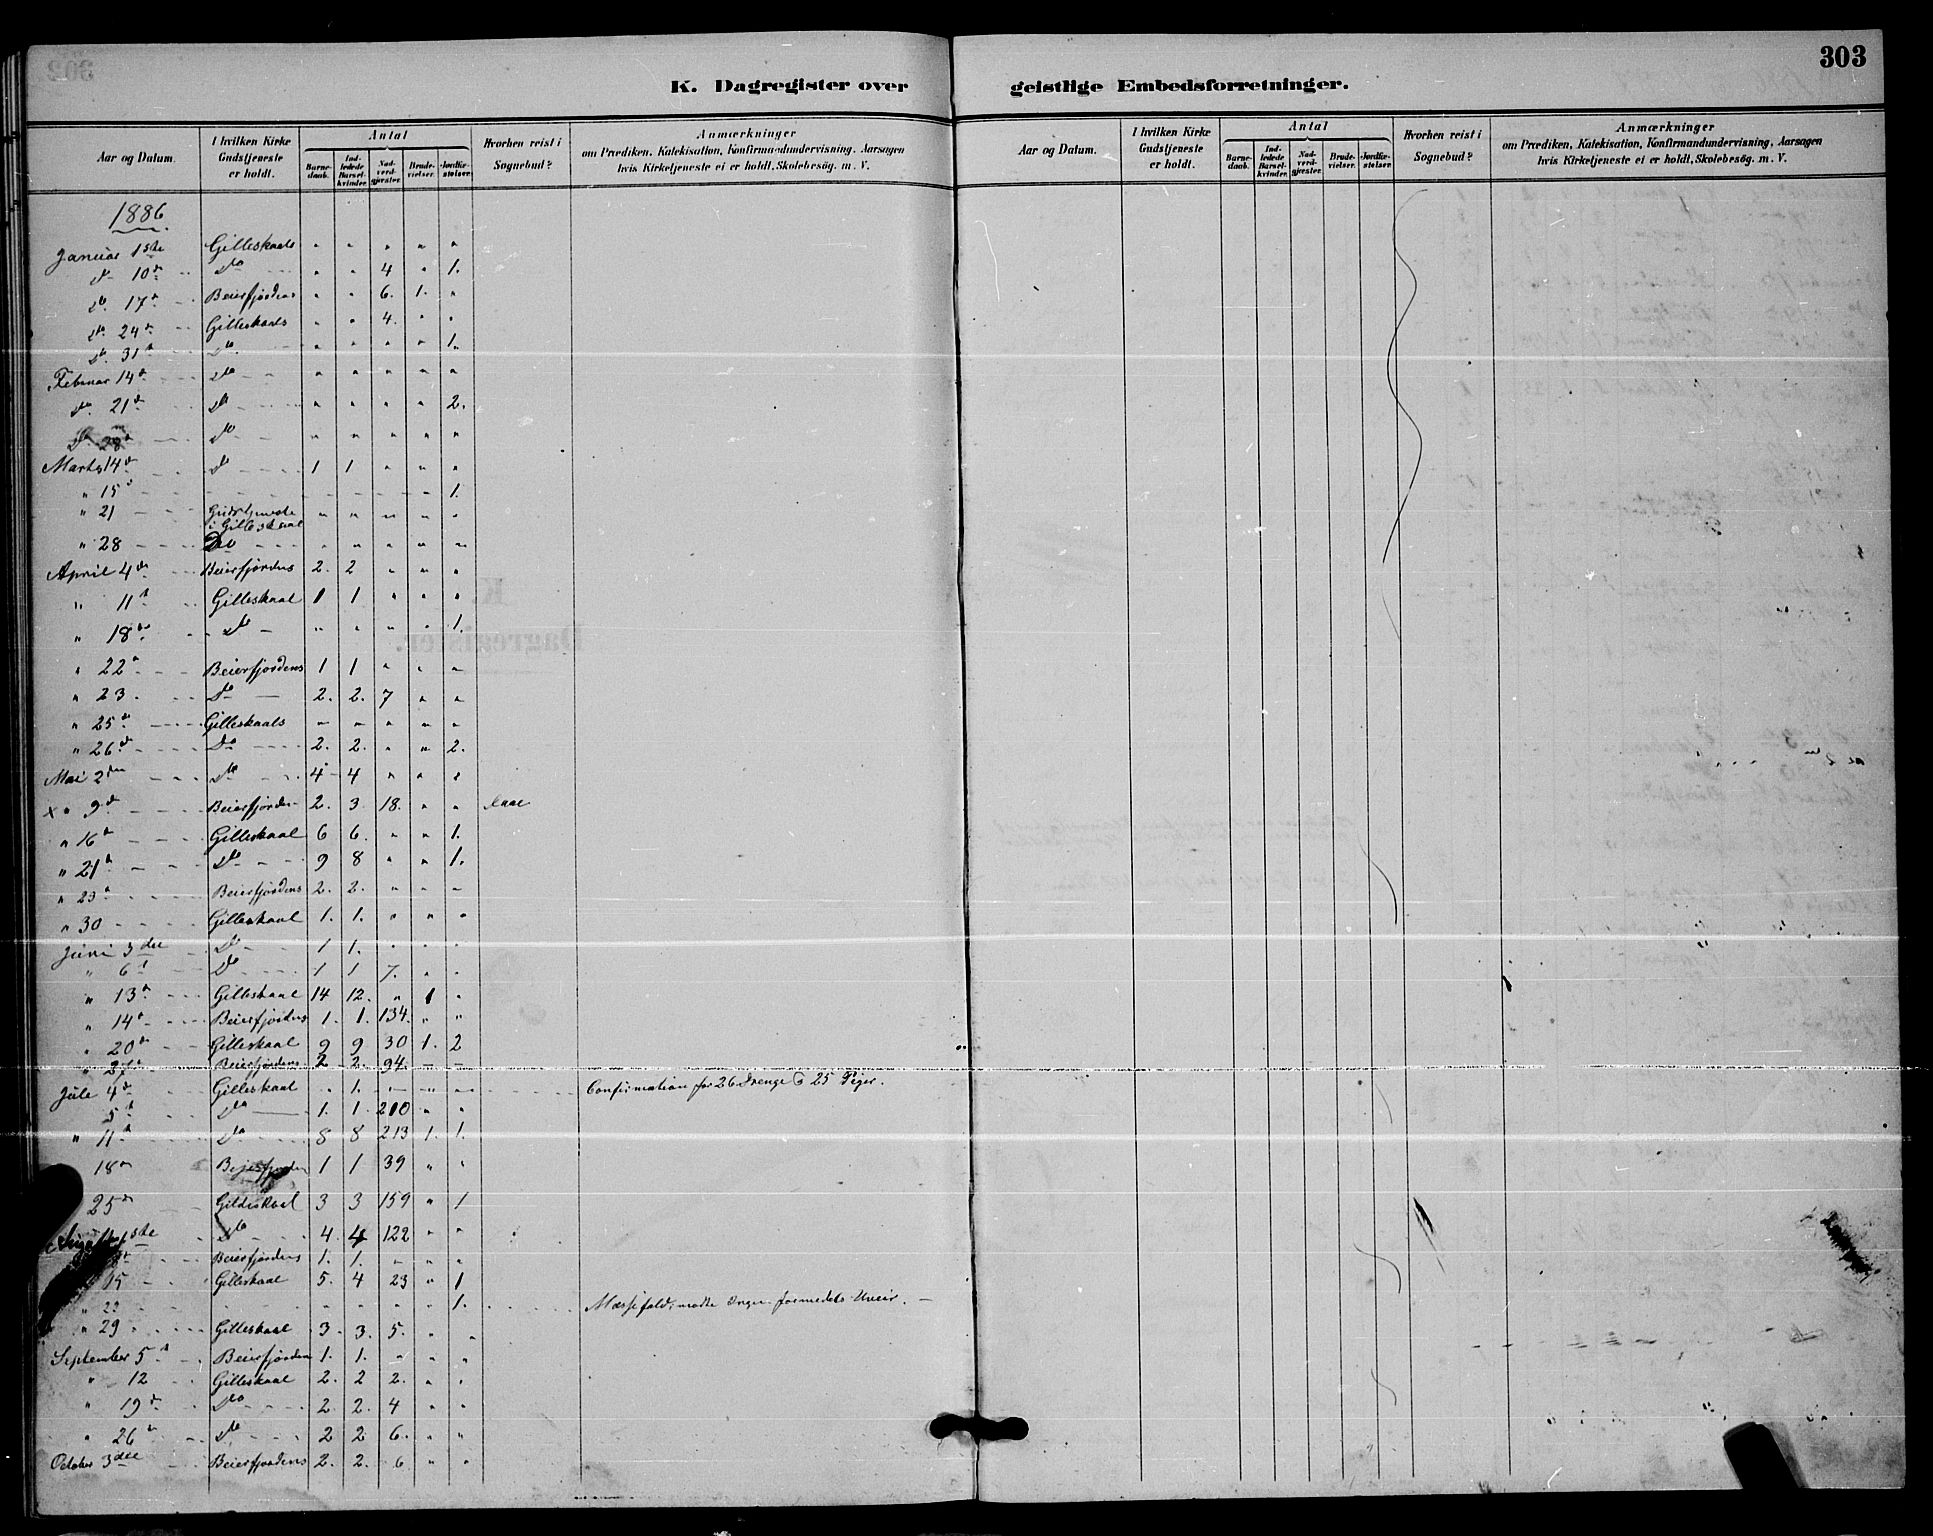 303
K. Dagregister over geistlige Embedsforretninger.
Aar og Datum. | I hvilken Kirke Gudstjeneste er holdt. | Antal | Barne-daab. | Ind-ledede Barsel-kvinder. | Nad-verd-gjester. | Brude-vielser. | Jordfæ-stelser. | Hvorhen reist i Sognebud? | Anmærkninger om Prædiken, Katekisation, Konfirmandundervisning, Aarsagen hvis Kirketjeneste ei er holdt, Skolebesøg. m. V.
Aar og Datum. | I hvilken Kirke Gudstjeneste er holdt. | Antal | Barne-daab. | Ind-ledede Barsel-kvinder. | Nad-verd-gjester. | Brude-vielser. | Jordfæ-stelser. | Hvorhen reist i Sognebud? | Anmærkninger om Prædiken, Katekisation, Konfirmandundervisning, Aarsagen hvis Kirketjeneste ei er holdt, Skolebesøg. m. V.
1886
Januar 1ste Gilleskaals " " " " "
do 10de do " " 4 " 1.
do 17de Beierfjordens " " 6. 1. "
do 24de Gilleskaals " " 4. " "
do 31te do " " " " 1.
Februar 14de do " " " " "
do 21de do " " " " 2.
do 28de do " " " " "
Marts 14de do 1 1 " " "
" 15de " 1.
" 21 Gudstjeneste i Gilleskaal " " " " "
" 28 Do " " " " "
April 4de Beierfjordens 2. 2 " " "
" 11te Gilleskaal 1 1 " " "
" 18de do " " " " 1.
" 22de Beierfjordens 1 1 " " "
" 23. do 2. 2. 7 " "
" 25de Gilleskaals " " " " "
" 26de do 2. 2. " " 2.
Mai 2den do 4 4 " " "
x " 9de Beierfjorden 2. 3. 18. " "
" 16de Gilleskaal 6 6. " " 1.
" 21de do 9 8 " " 1.
" 23de Beierfjordens 2. 2. " " "
" 30 Gilleskaal 1. 1. " " "
Juni 3die do 1 1. " " "
" 6te do 1 1 7. " "
" 13de Gilleskaal 14 12. " 1 "
" 14de Beierfjordens 1. 1. 134. " "
" 20de Gilleskaal 9 9 30 1. 2
" 27de Beierfjordens 2 2. 94. — —
Jule 4de Gilleskaal " 1. — " " Confirmation for 26 Drenge & 25 Piger.
5te do 1. 1. 210 " "
" 11te do 8 8 213 1. 1.
18de Beierfjorden 1 1 39 " "
25de Gildeskaal 3 3 159 " 1
August 1ste do 4. 4 122 " "
8de Beierfjordens 1. 1. " " "
15 Gilleskaal 5. 4 23 " 1
" 22 " " " " 1. Messefald, mødte Ingen formedels Uveir. —
" 29 Gilleskaal 3. 3. 5. " "
September 5te Beierfjorden 1. 1. " " "
" 12 Gilleskaal 2. 2 2. " "
" 19de do 2. 2. 4 " "
" 26de do 2 2 6. " "
October 3die Beierfjordens 2. 2. 6 " "